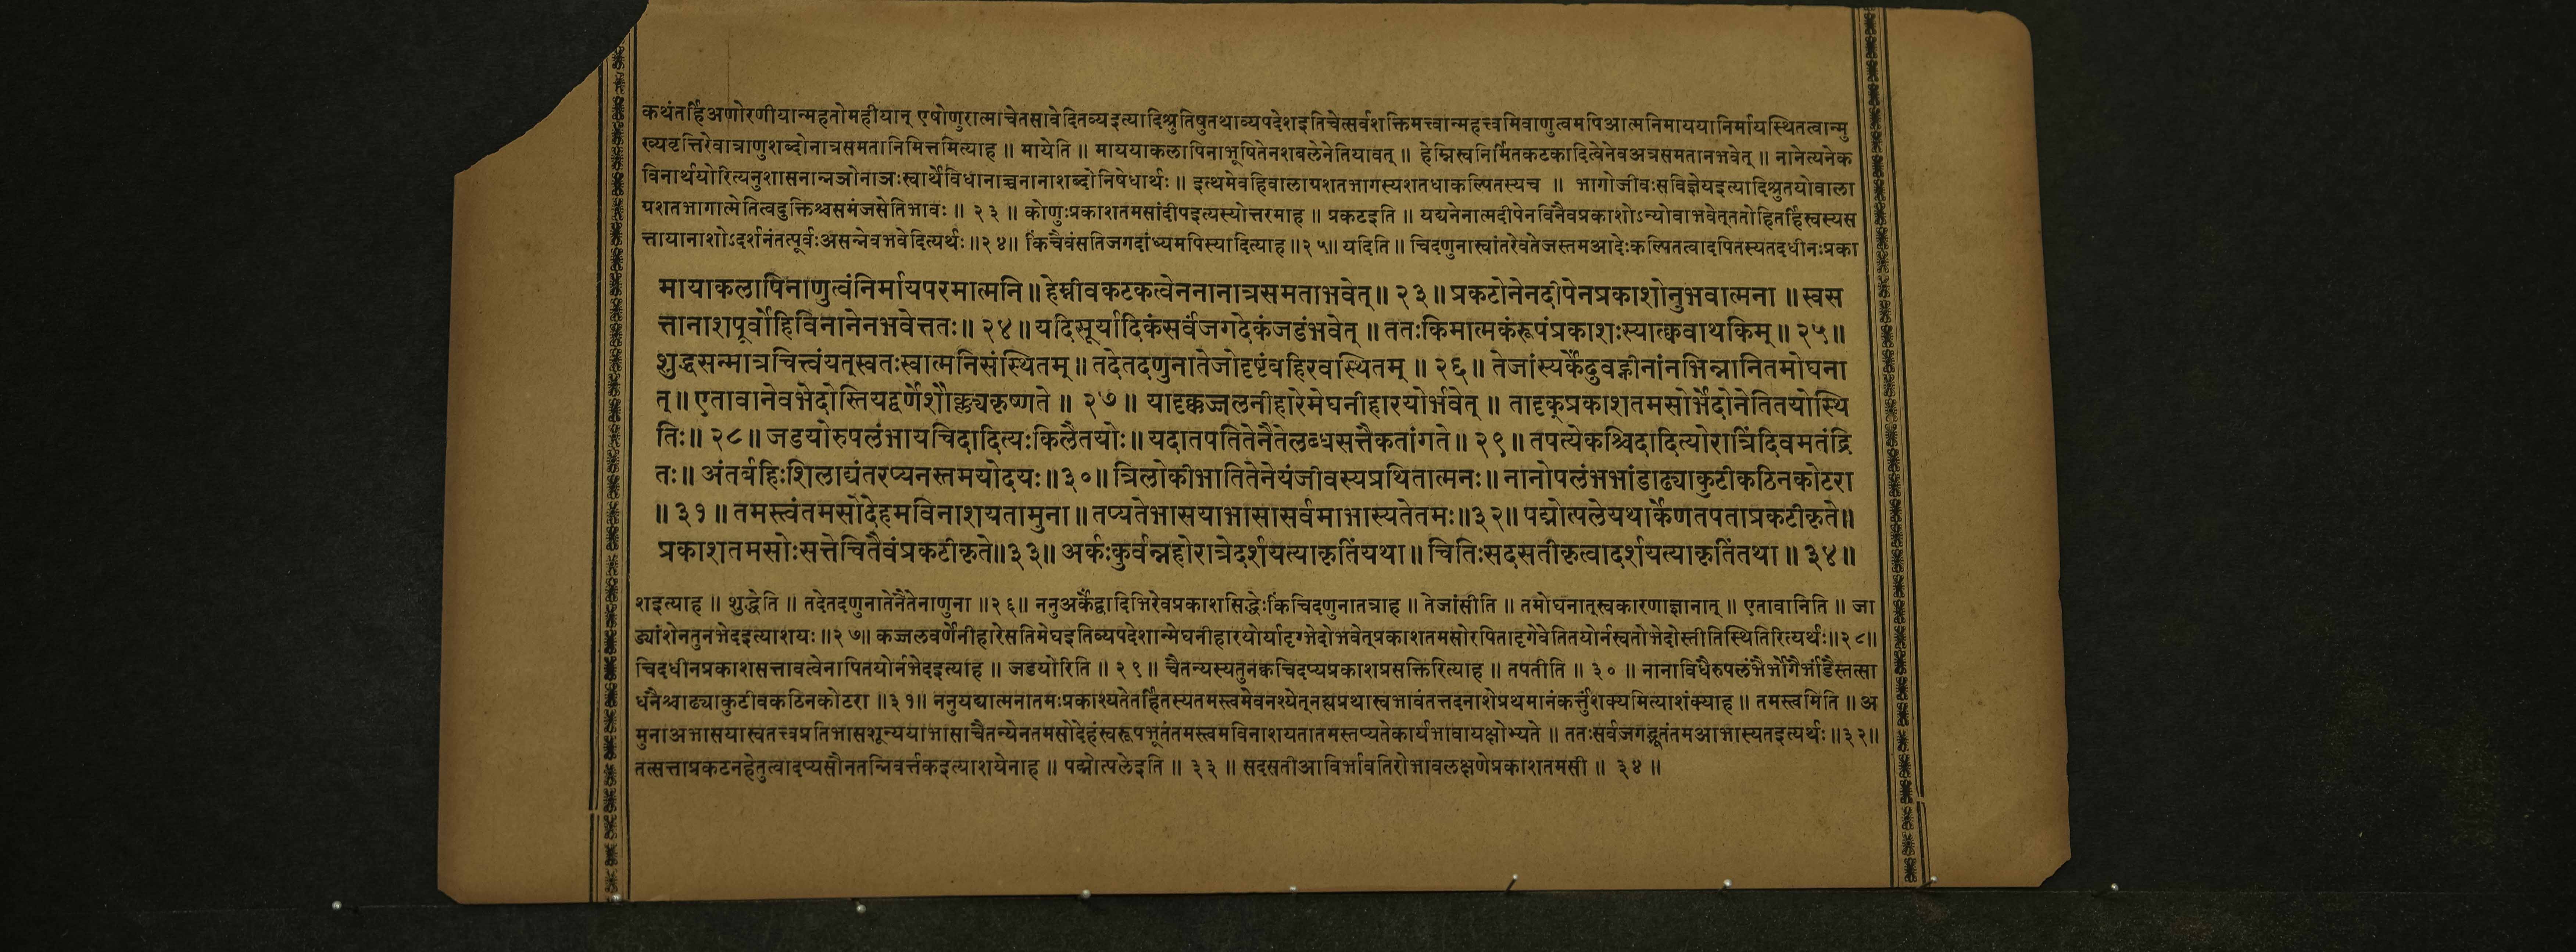 कथंतर्हिअणोरणीयान्महतोमहीयान् एषोणुरात्माचेतसावेदितव्यइत्यादिश्रुतिषुतथाव्यपदेशइतिचेत्सर्वशक्तिमत्त्वान्महत्त्वमिवाणुत्वमपिआत्मनिमाययानिर्मायस्थितत्वान्मु
ख्यवृत्तिरेवात्राणुशब्दोनात्रसमतानिमित्तमित्याह ॥ मायेति ॥ माययाकलापिनाभूषितेनशबलेनेतियावत् ॥ हेम्निस्वनिर्मितकटकादित्वेनेवअत्रसमतानभवेत् ॥ नानेत्यनेक
विनार्थयोरित्यनुशासनान्नञोनाञःस्वार्थेविधानाच्चनानाशब्दोनिषेधार्थः ॥ इत्थमेवहिवालाग्रशतभागस्यशतधाकल्पितस्यच ॥ भागोजीवःसविज्ञेयइत्यादिश्रुतयोवाला
ग्रशतभागात्मेतित्वदुक्तिश्चसमंजसेतिभावः ॥ २३ ॥ कोणुःप्रकाशतमसांदीपइत्यस्योत्तरमाह ॥ प्रकटइति ॥ यद्यनेनात्मदीपेनविनैवप्रकाशोऽन्योवाभवेत्ततोहितर्हिस्वस्यस
त्तायानाशोऽदर्शनंतत्पूर्वःअसन्नेवभवेदित्यर्थः ॥२४॥ किंचैवंसतिजगदांध्यमपिस्यादित्याह ॥२५॥ यदिति ॥ चिदणुनास्वांतरेवतेजस्तमआदेःकल्पितत्वादपितस्यतदधीनःप्रका
मायाकलापिनाणुत्वंनिर्मायपरमात्मनि ॥ हेम्नीवकटकत्वेननानात्रसमताभवेत् ॥ २३ ॥ प्रकटोनेनदीपेनप्रकाशोनुभवात्मना ॥ स्वस
त्तानाशपूर्वोहिविनानेनभवेत्ततः ॥ २४ ॥ यदिसूर्यादिकंसर्वंजगदेकंजडंभवेत् ॥ ततःकिमात्मकंरूपंप्रकाशःस्यात्क्ववाथकिम् ॥ २५ ॥
शुद्धसन्मात्रचित्त्वंयत्स्वतःस्वात्मनिसंस्थितम् ॥ तदेतदणुनातेजोदृष्टंबहिरवस्थितम् ॥ २६ ॥ तेजांस्यर्केंदुवह्नीनांनभिन्नानितमोघना
त् ॥ एतावानेवभेदोस्तियद्वर्णेशौक्ल्यकृष्णते ॥ २७ ॥ यादृक्कज्जलनीहारेमेघनीहारयोर्भवेत् ॥ तादृक्प्रकाशतमसोर्भेदोनेतितयोस्थि
तिः ॥ २८ ॥ जडयोरुपलंभायचिदादित्यःकिलैतयोः ॥ यदातपतितेनैतेलब्धसत्तैकतांगते ॥ २९ ॥ तपत्येकश्चिदादित्योरात्रिंदिवमतंद्रि
तः ॥ अंतर्बहिःशिलाद्यंतरप्यनस्तमयोदयः ॥३०॥ त्रिलोकीभातितेनेयंजीवस्यप्रथितात्मनः ॥ नानोपलंभभांडाढ्याकुटीकठिनकोटरा
॥ ३१ ॥ तमस्त्वंतमसोदेहमविनाशयतामुना ॥ तप्यतेभासयाभासासर्वमाभास्यतेतमः ॥३२॥ पद्मोत्पलेयथार्केणतपताप्रकटीकृते ॥
प्रकाशतमसोःसत्तेचितैवंप्रकटीकृते ॥३३॥ अर्कःकुर्वन्नहोरात्रेदर्शयत्याकृतिंयथा ॥ चितिःसदसतीकृत्वादर्शयत्याकृतिंतथा ॥ ३४ ॥
शइत्याह ॥ शुद्धेति ॥ तदेतदणुनातेनैतेनाणुना ॥२६॥ ननुअर्केंद्वादिभिरेवप्रकाशसिद्धेःकिंचिदणुनातत्राह ॥ तेजांसीति ॥ तमोघनात्स्वकारणाज्ञानात् ॥ एतावानिति ॥ जा
ड्यांशेनतुनभेदइत्याशयः ॥२७॥ कज्जलवर्णेनीहारेसतिमेघइतिव्यपदेशान्मेघनीहारयोर्यादृग्भेदोभवेत्प्रकाशतमसोरपितादृगेवेतितयोर्नस्वतोभेदोस्तीतिस्थितिरित्यर्थः ॥२८॥
चिदधीनप्रकाशसत्तावत्वेनापितयोर्नभेदइत्याह ॥ जडयोरिति ॥ २९ ॥ चैतन्यस्यतुनक्वचिदप्यप्रकाशप्रसक्तिरित्याह ॥ तपतीति ॥ ३० ॥ नानाविधैरुपलंभैर्भोगैर्भांडैस्तत्सा
धनैश्चाढ्याकुटीवकठिनकोटरा ॥३१॥ ननुयद्यात्मनातमःप्रकाश्यतेतर्हितस्यतमस्त्वमेवनश्येत्नह्यप्रथास्वभावंतत्तदनाशेप्रथमानंकर्त्तुंशक्यमित्याशंक्याह ॥ तमस्त्वमिति ॥ अ
मुनाअभासयास्वतत्त्वप्रतिभासशून्ययाभासाचैतन्येनतमसोदेहंस्वरूपभूतंतमस्त्वमविनाशयतातमस्तप्यतेकार्यभावायक्षोभ्यते ॥ ततःसर्वजगद्भूतंतमआभास्यतइत्यर्थः ॥३२॥
तत्सत्ताप्रकटनहेतुत्वादप्यसौनतन्निवर्त्तकइत्याशयेनाह ॥ पद्मोत्पलेइति ॥ ३३ ॥ सदसतीआविर्भावतिरोभावलक्षणेप्रकाशतमसी ॥ ३४ ॥